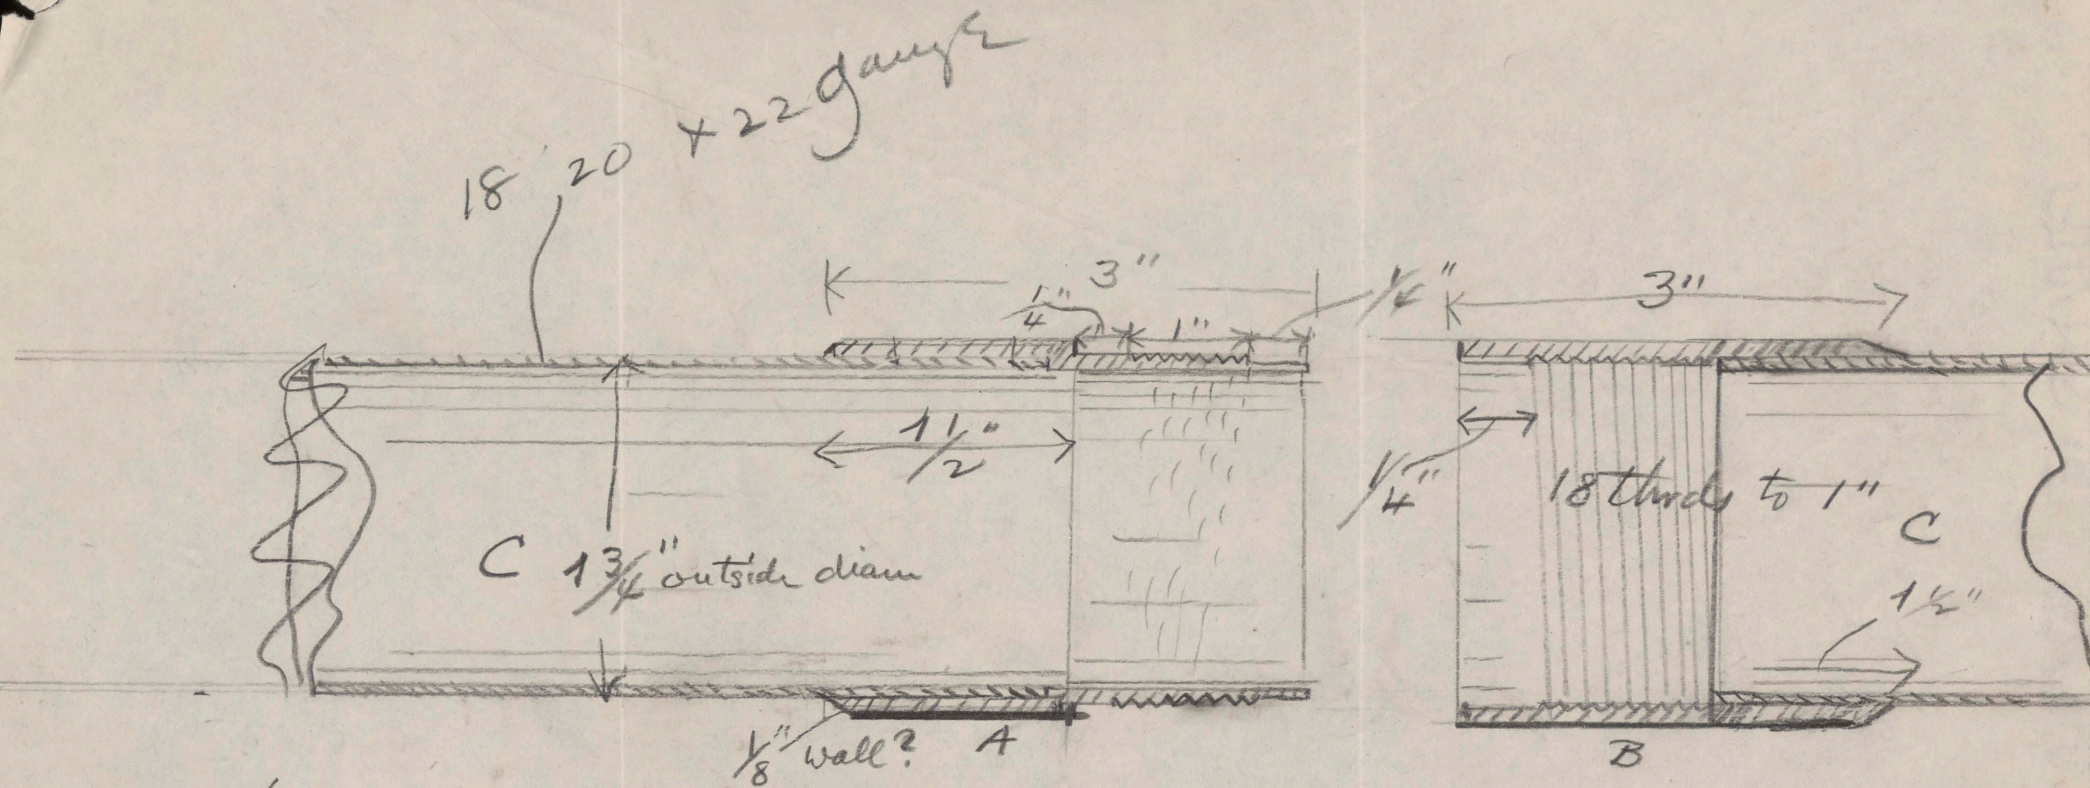 18 20 + 22 gauge
3"
1/4"
1"
1/4"
3"
1 1/2"
1/4"
18 thrds to 1"
C
C 1 3/4" outside diam
1 1/2"
1/8" wall?
A
B